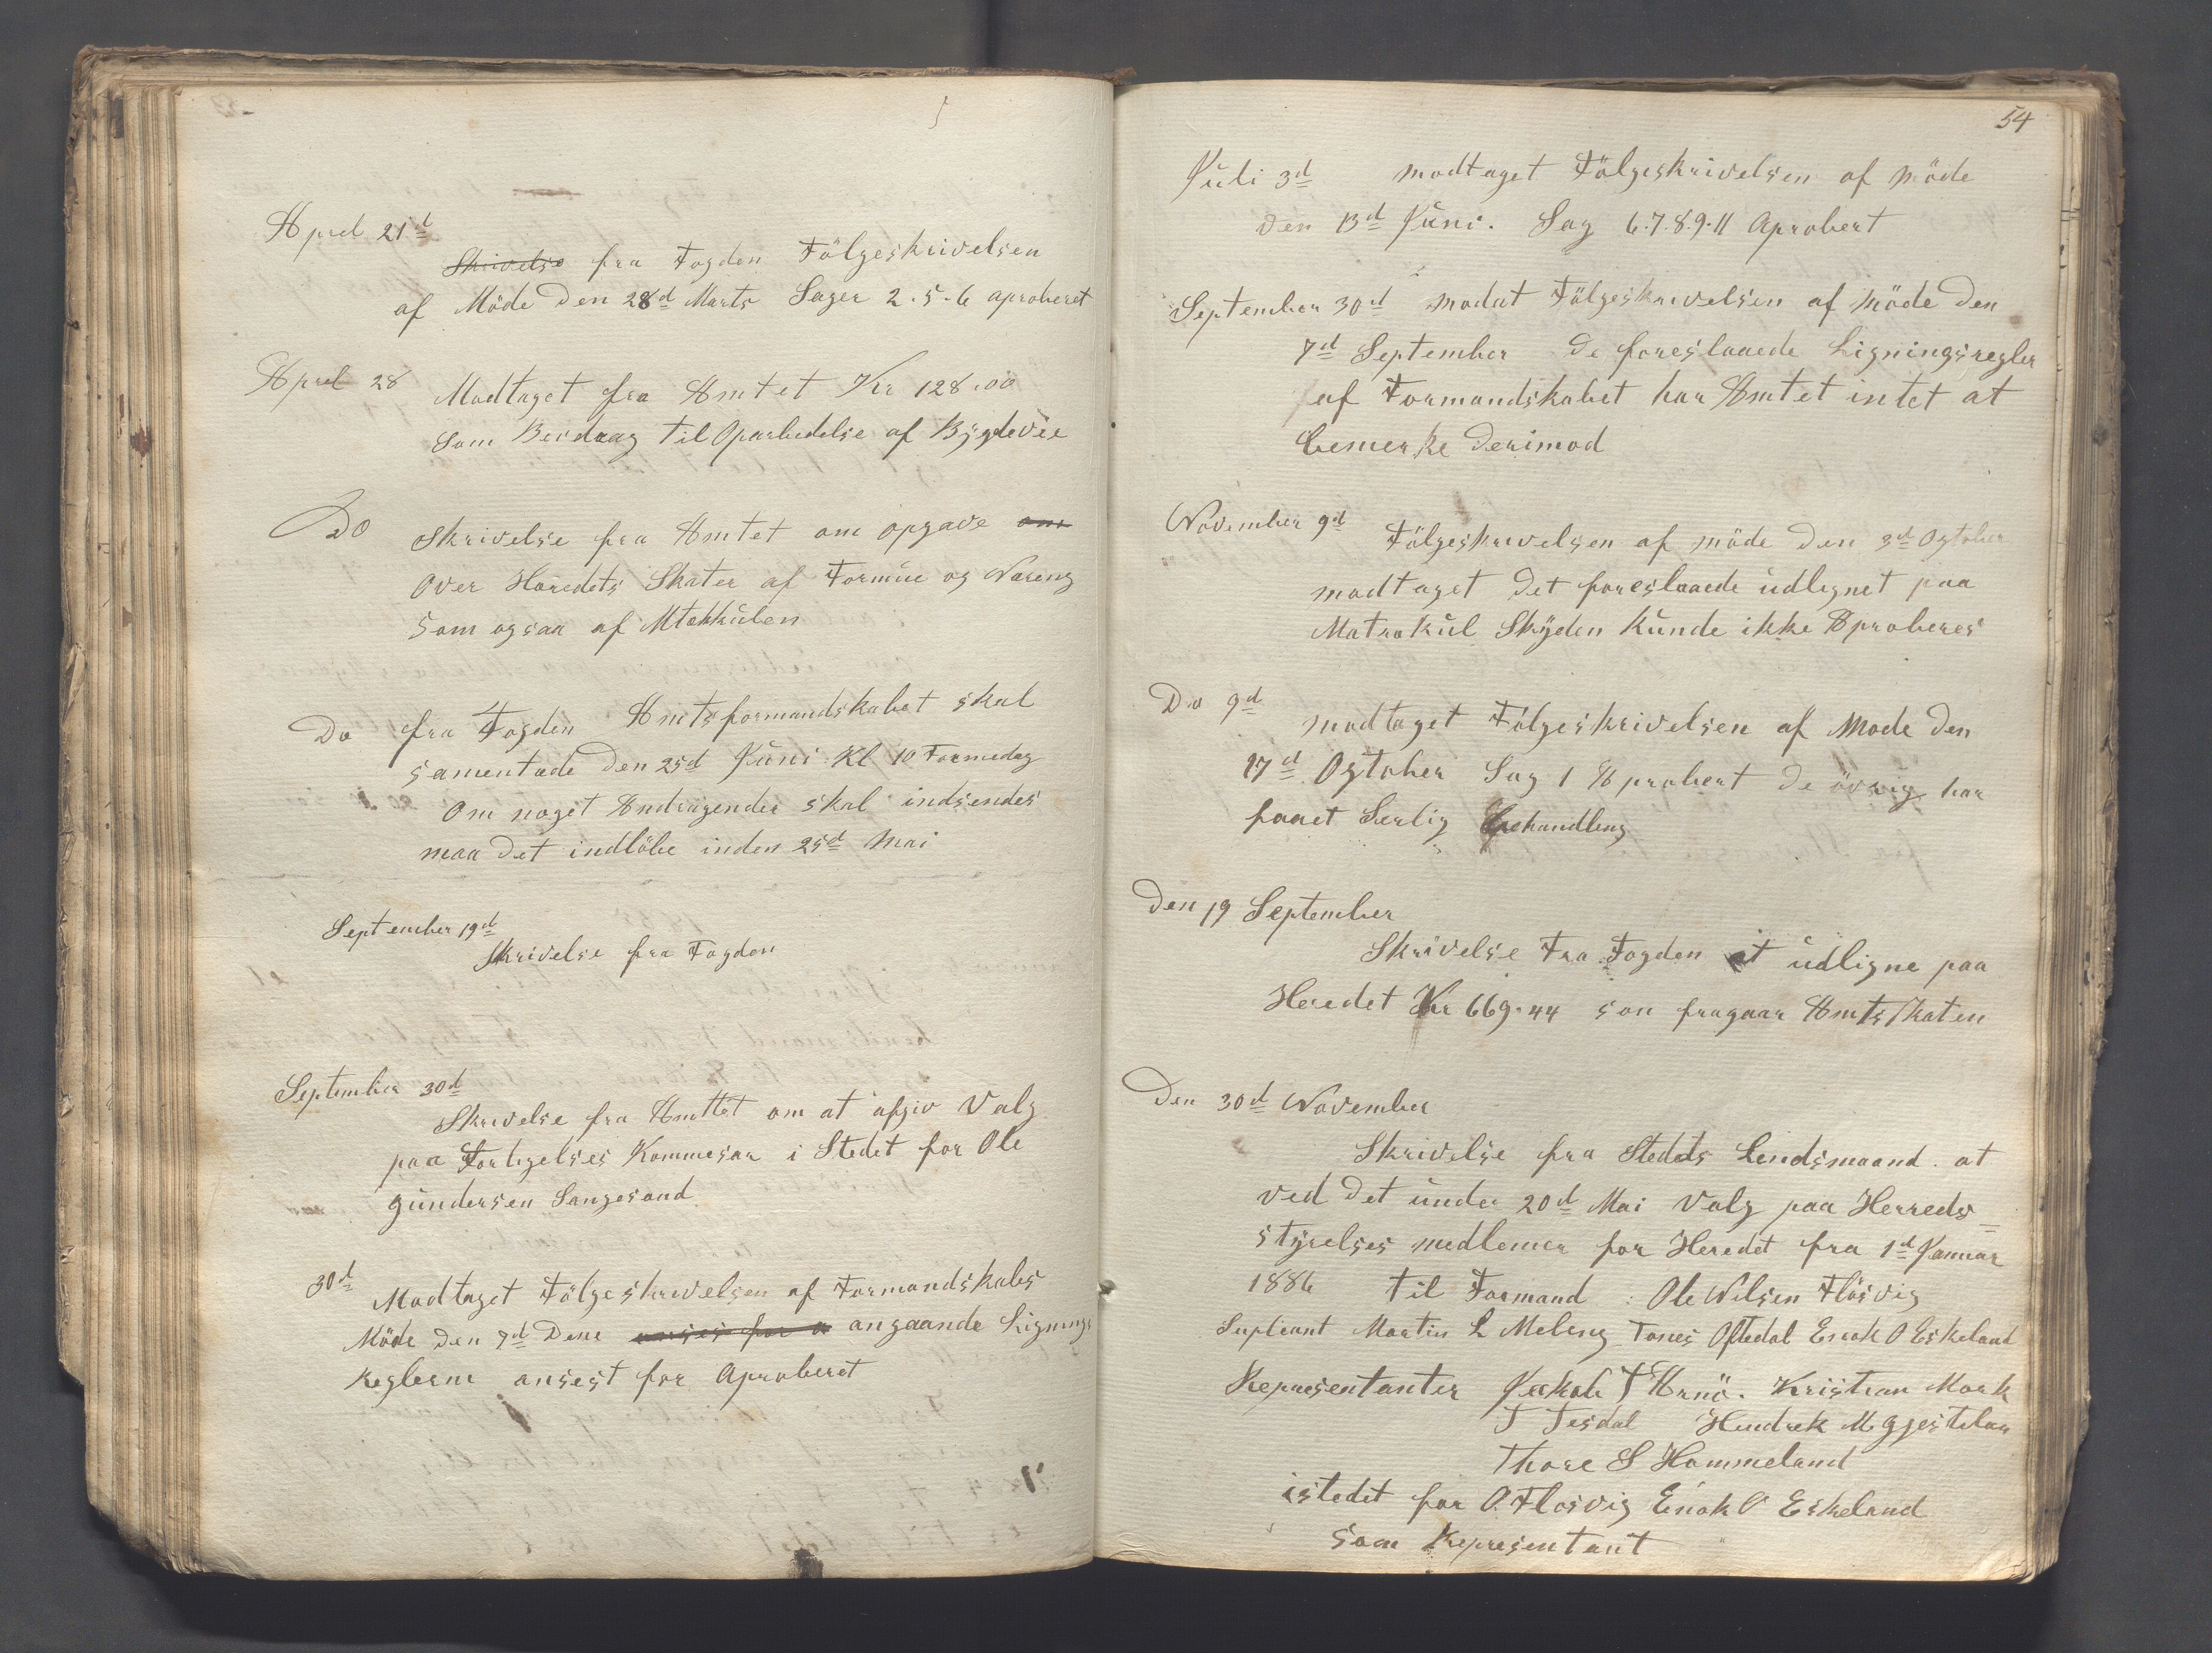 Aprel 21d
Skrivelse fra Fogden Fölgeskrivelsen
af Möde Den 28d Marts Sager 2.5.6 aproberet
Aprel 28 Modtaget fra Amtet Kr 128.00
som Beidraag til Oparbedelse af Bygdevee
Do Skrivelse fra Amtet om opgave om
over Heredets Skater af Formue og Nareng
som ogsaa af Mtrkkulen
Do fra Fogden Amtsformandskabet skal
samentrede Den 25d Juni Kl 10 Formedag
Om noget Andragender skal indsendes
maa Det indlöbe inden 25d Mai
September 19d
Skrivelse fra Fogden
September 30d
Skrivelse fra Amttet om at afgiv Valg
paa Forligelses Kommesar i Stedet for Ole
gundersen Sangesand
30d Modtaget Fölgeskrivelsen af Formandskabs
Möde Den 7d Dene anses for a angaande Lignings
Reglerne ansest for Aproberet
54
Juli 3d modtaget Fölgeskrivelsen af Möde
Den 13d Juni. Sag 6.7.8.9.11 Aprobert
September 30d modat Fölgeskrivelsen af Möde Den
7d September De foreslaaede Ligningsregler
af Formandskabet har Amtet intet at
bemerke Derimod
November 9d Fölgeskrivelsen af möde Den 3d Ogtober
modtaget Det foreslaaede udlignet paa
Matrakul Skylden Kunde ikke Aproberes
Do 9d modtaget Fölgeskrivelsen af Mode Den
17d Ogtober Sag 1 Aprobert De övrig har
faaet Serlig Behandling
Den 19 September
Skrivelse Fra Fogden at udligne paa
Heredet Kr 669.44 son fragaar Amts Skaten
Den 30d November
Skrivelse fra Stedets Lendsmaand at
ved Det under 20d Mai Valg paa Herreds=
styrelses medlemer for Heredet fra 1d Januar
1886 til Formand : Ole Nilsen Flösvig
Supleant Martin L Meling Tönes Oftedal Enok O Eskeland
Representanter Jakob T Arnö. Kristian Mork
T Tesdal Hendrek M gjestelan
Thore S Hommeland
istedet for O. Flosvig Enok O Eskeland
som Representant